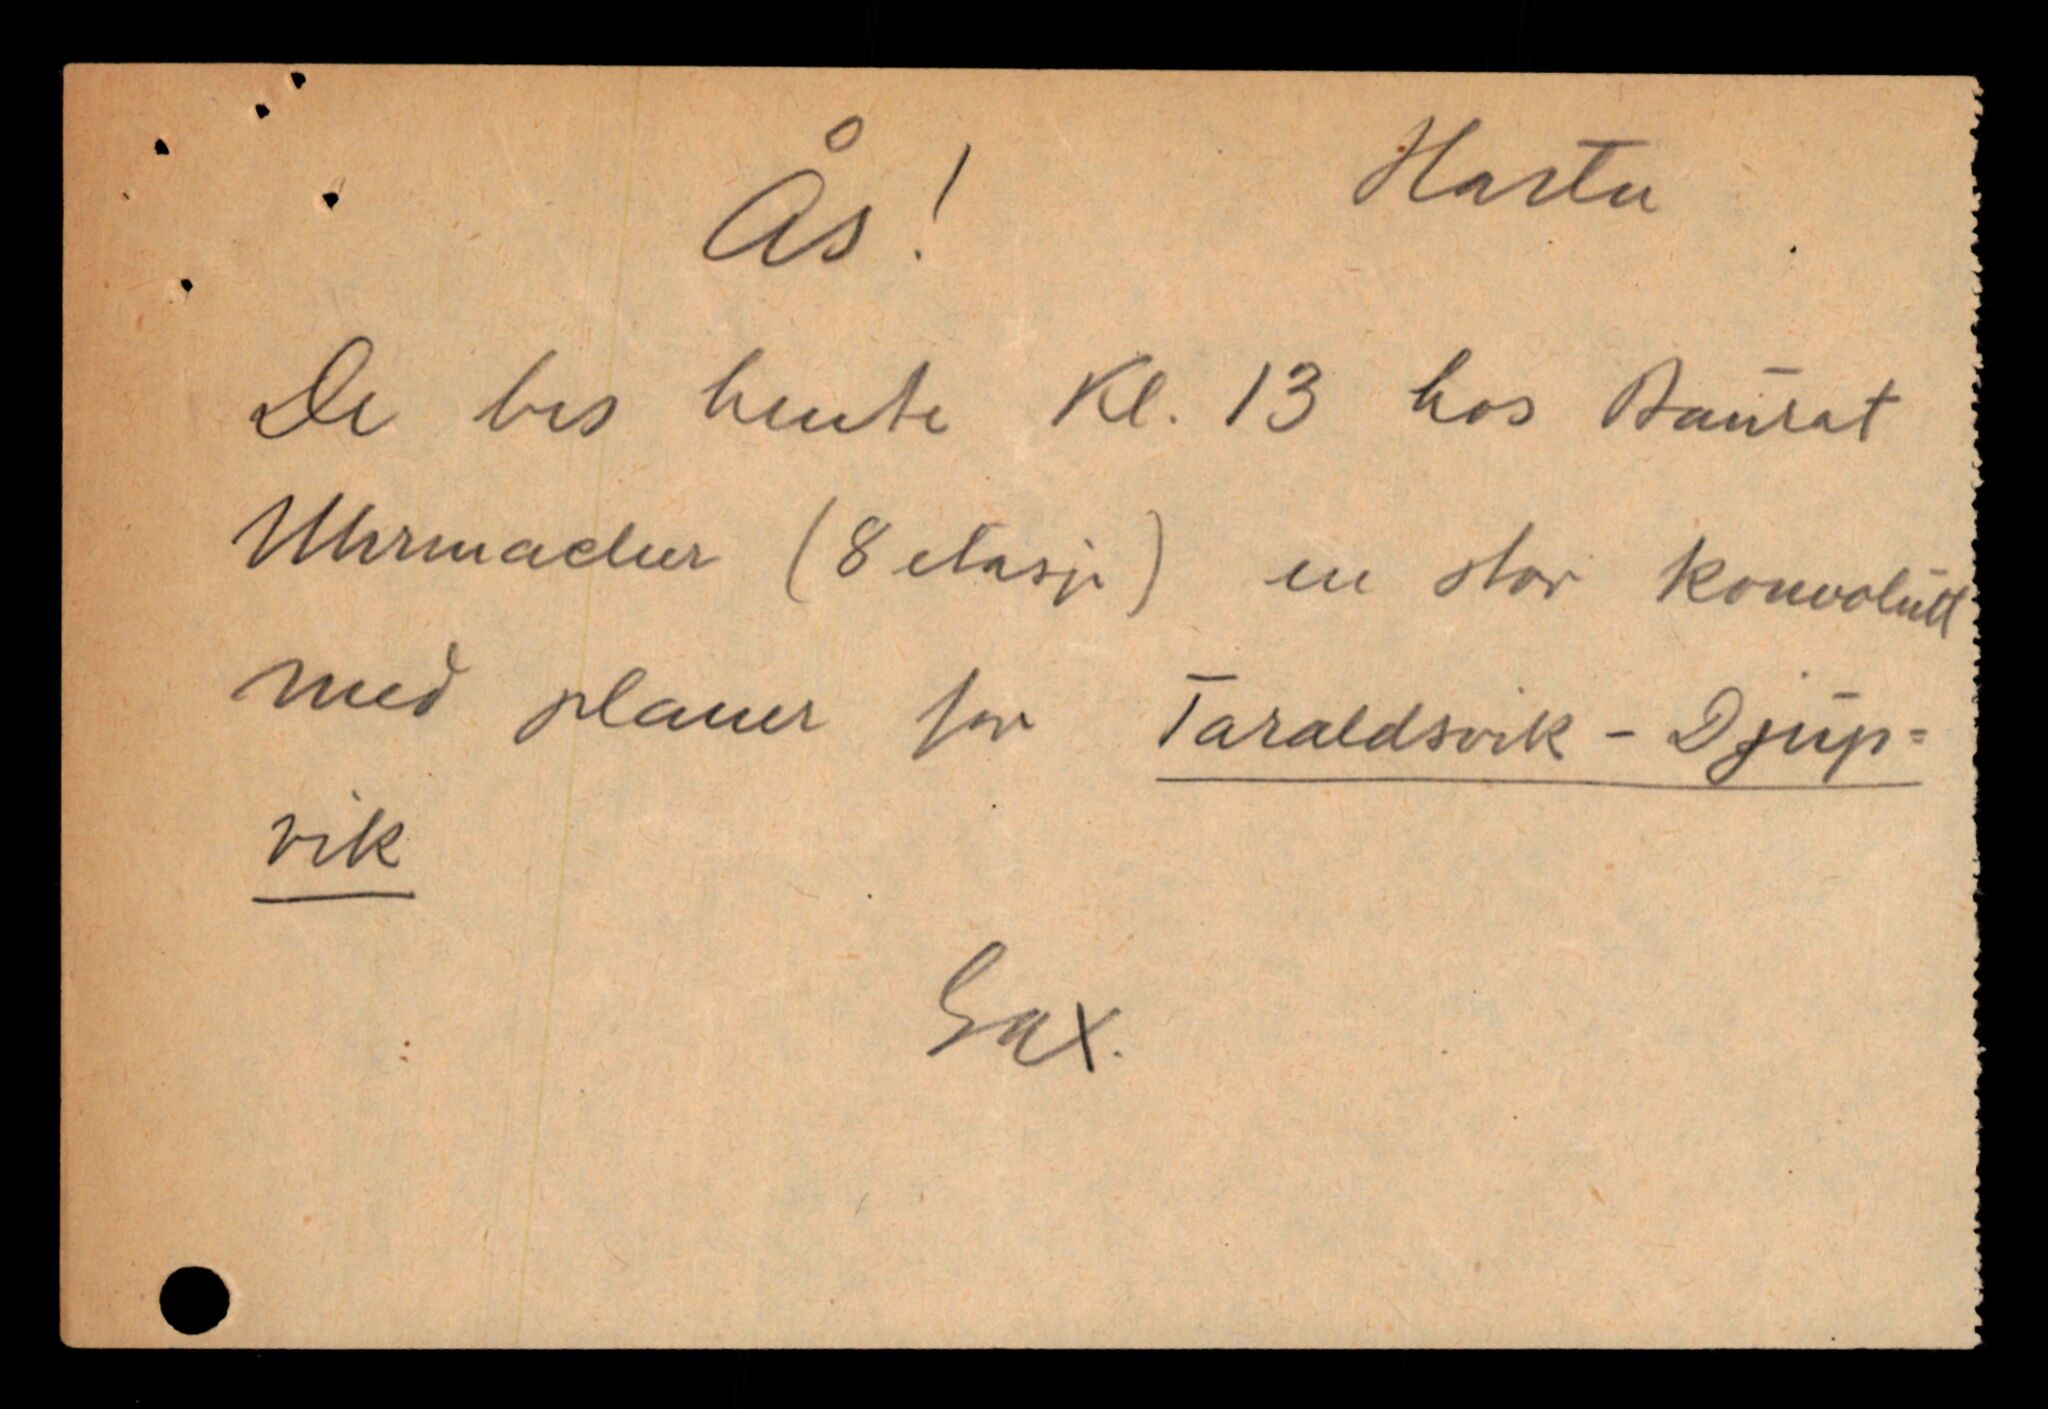 Ås! Haster
De bes hente Kl. 13 hos Baurat
Uhrmacher (8 etasje) en stor konvolutt
med planer for Taraldsvik - Djup=
vik
Sax.